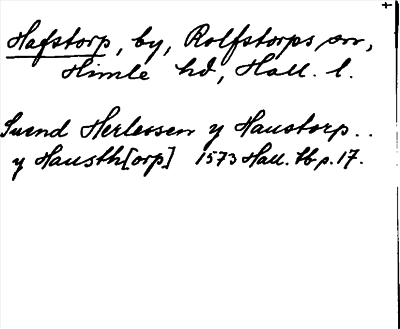 Hafstorp, by, Rolfstorps sn,
Himle hd, Hall. l.
Svend Herlessen y Haustorp..
y Hausth[orp] 1573 Hall. tb p. 17.